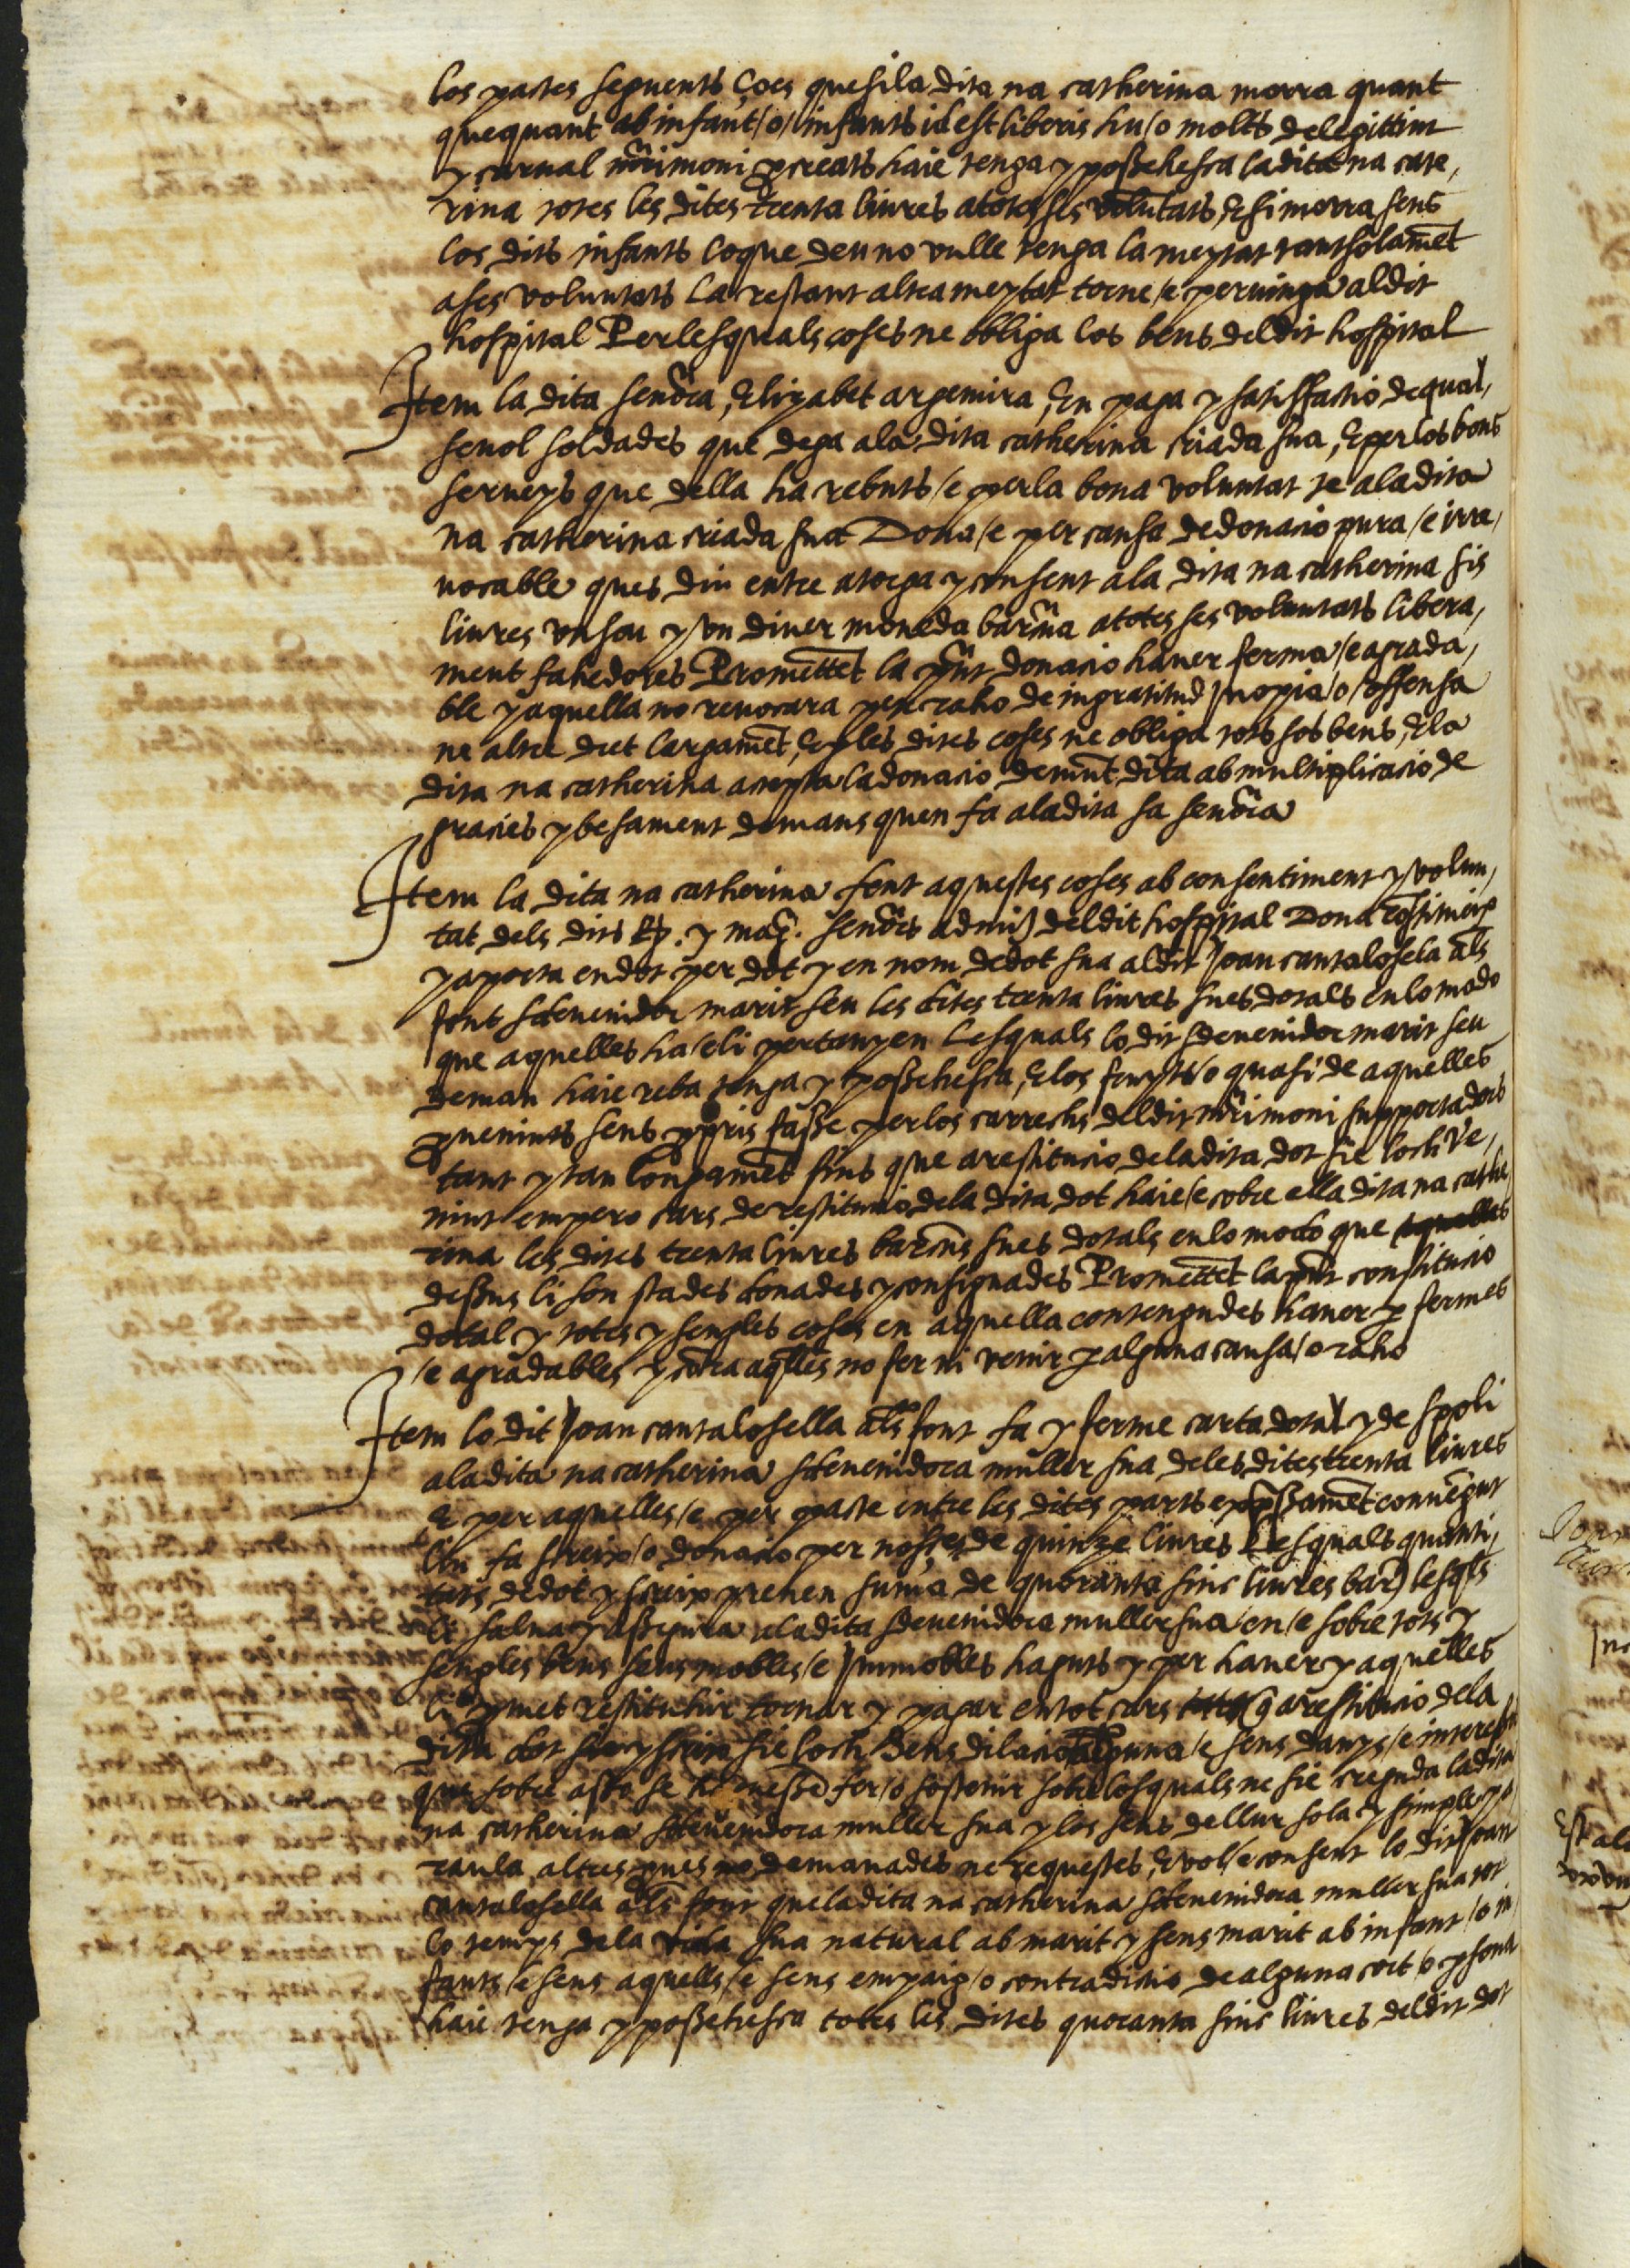 los pactes seguents Çoes que si la dita na catherina morra quant
que quant ab infant /o/ infants id est liberis hu /o molts de legittim
y carnal mr̃imoni ꝓcreats haie tenga y possehesca la dita na cate,
rina totes les dites trenta liures a totes ses voluntats, E si morra sens
los dits infants lo que deu no vulle tenga la meytat tant solamēt
a ses voluntats la restant altra meytat torne /e peruinga al dit
hospital Per les quals coses ne obliga los bens del dit hospital
Item la dita senõra, Elizabet argemira, En paga y satisffactio de qual,
seuol soldades que dega a la dita catherina criada sua, E per los bons
serueys que della ha rebuts /e per la bona voluntat te a la dita
na catherina criada sua Dona /e per causa de donacio pura /e irre,
uocable ques diu entre atorga y consent a la dita na catherina sis
liures vn sou y vn diner moneda barc̃na a totes ses voluntats libera,
ment fahedores Promettēt la pñt donacio hauer ferma /e agrada,
ble y aquella no reuocara per raho de ingratitud Inopia /o /offensa
ne altre dret largamēt, E ꝑ les dites coses ne obliga tots sos bens, E la
dita na catherina accepta la donacio demūt dita ab multiplicacio de
gracies y besament de mans quen fa a la dita sa senõra
Item la dita na catherina fent aquestes coses ab consentiment y volun,
tat dels dits R̃. y mag̃. senõrs admĩs del dit hospital Dona cōstitueix
y aporta en dot per dot y en nom de dot sua al dit Joan cantalosela als̃
font sdeuenidor marit seu les dites trenta liures sues dotals en lo modo
que aquelles ha /e li pertanyen Les quals lo dit sdeuenidor marit seu
deman haie reba tenga y possehesca, E los fruyts /o quasi de aquelles
ꝓuenints sens ꝓpris fasse per los carrechs del dit mr̃imoni supportadors
tant y tan longamēt fins que a restitucio de la dita dot sie loch Ve,
nint empero cars de restitucio de la dita dot haie /e cobre ella dita na cathe,
rina les dites trenta liures barc̃ns sues dotals en lo modo que aquelles
dessus li son stades donades y consignades Promettēt la pñt constitucio
dotal y totes y sengles coses en aquella contengudes hauer ꝑ fermes
/e agradables, y cōtra aq̃lles no fer ni venir ꝑ alguna causa /o raho
Item lo dit Joan cantalosella als̃ font fa y ferme carta dotal y de spoli
a la dita na catherina sdeuenidora muller sua de les dites trenta liures
E per aquelles /e per pacte entre les dites parts exp̃ssamēt conuēgut
lin fa screix /o donacio per nosses de quinze liures Les quals quanti,
tats de dot y screix prenen suma de quoranta sinc liures bar̃ lesq̃ls
li salua y assegura a la dita sdeuenidora muller sua /en /e sobre tots y
sengles bens seus mobles /e Immobles haguts y per hauer y aquelles
li ꝓmet restituhir tornar y pagar en tot cars q̃ a restitucio de la
dita dot y screix sie loch Sens dilacio alguna /e sens danys /e interesos
que sobre asso se haguessē fer /o sostenir sobre los quals ne sie creguda la dita
na catherina sdeuenidora muller sua y los seus de llur sola y simple pa,
raula altres ꝓues no demanades ne requestes, E vol /e consent lo dit Joan
cantalosella als̃ font que la dita na catherina sdeuenidora muller sua tot
lo temps de la vida sua natural ab marit y sens marit ab infant /o in,
fants /e sens aquells /e sens empaig /o contradictio de alguna cort /o ꝑsona
haie tenga y possehesca totes les dites quoranta sinc liures del dit dot